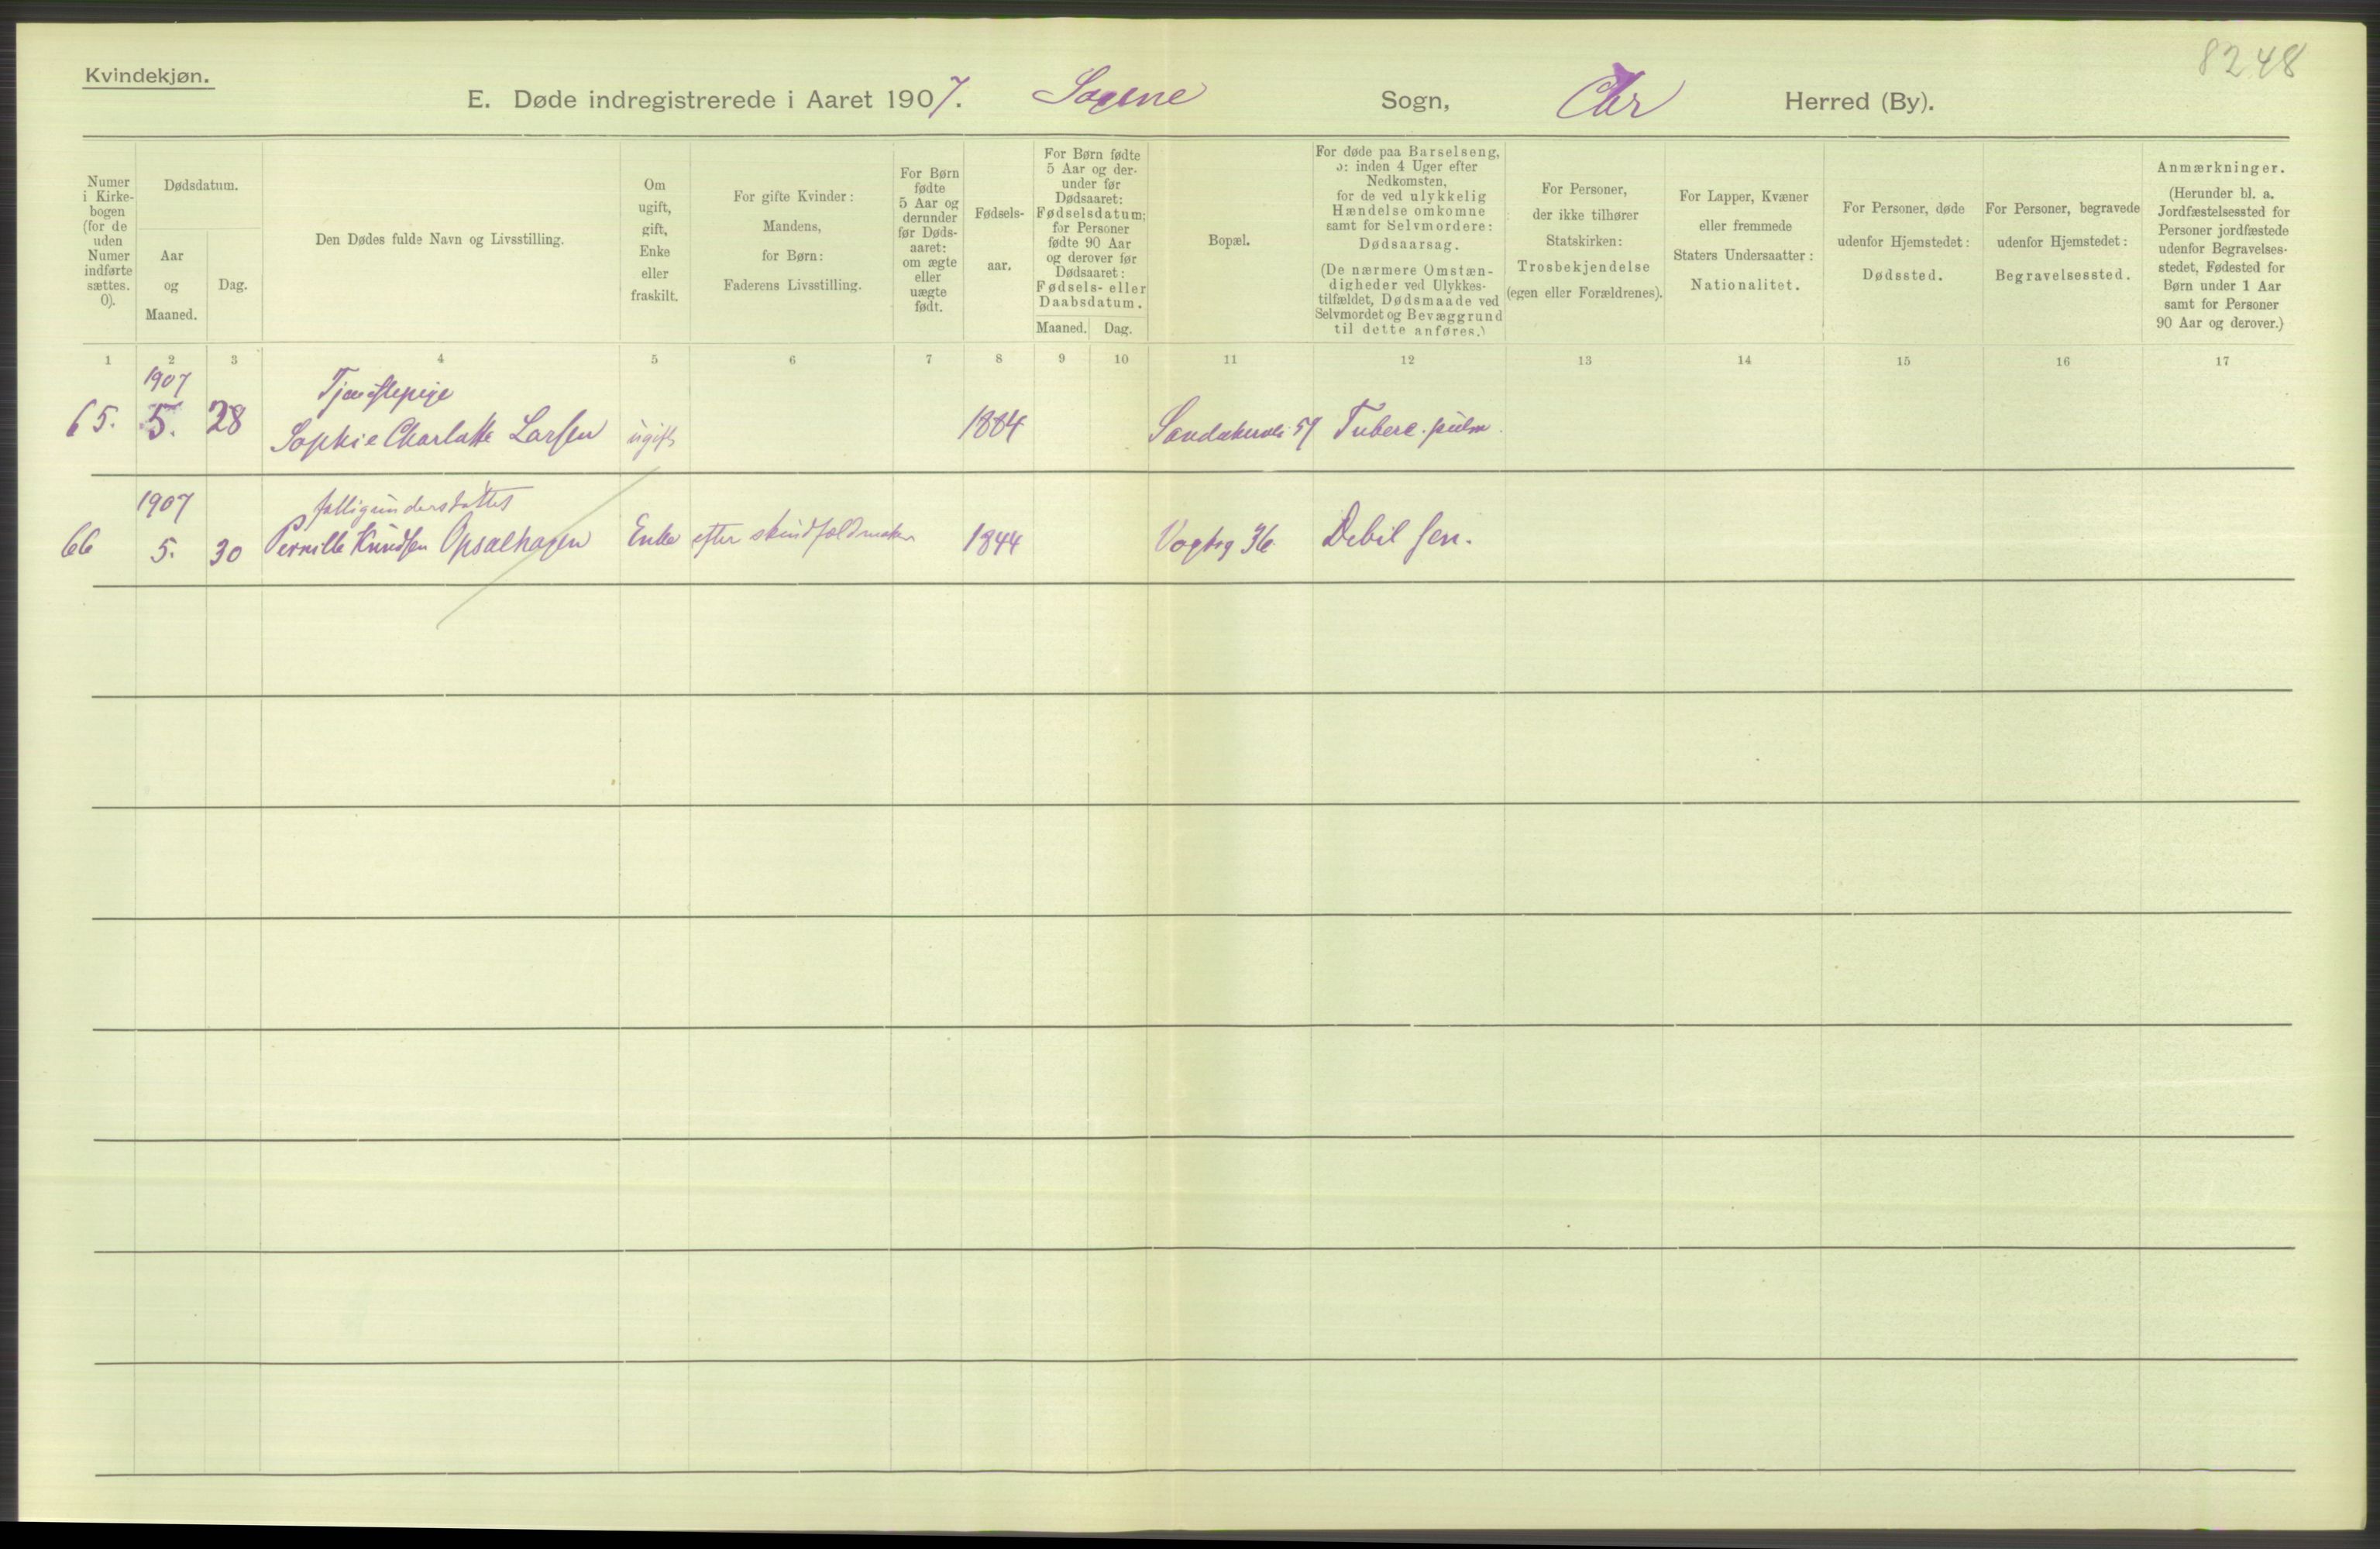 8248
Kvindekjøn.
E. Døde indregistrerede i Aaret 1907. Sagene Sogn, Chr Herred (By).
Numer
i Kirke-
bogen
(for de
uden
Numer
indførte
sættes.
0).
Dødsdatum.
Aar
og
Maaned.
Dag.
Den Dødes fulde Navn og Livsstilling.
Om
ugift,
gift,
Enke
eller
fraskilt.
For gifte Kvinder:
Mandens,
for Børn:
Faderens Livsstilling.
For Børn
fødte
5 Aar og
derunder
før Døds-
aaret:
om ægte
eller
uægte
født.
Fødsels-
aar.
For Børn fødte
5 Aar og der-
under før
Dødsaaret:
Fødselsdatum;
for Personer
fødte 90 Aar
og derover før
Dødsaaret:
Fødsels- eller
Daabsdatum.
Maaned. Dag.
Bopæl.
For døde paa Barselseng,
ɔ: inden 4 Uger efter
Nedkomsten,
for de ved ulykkelig
Hændelse omkomne
samt for Selvmordere:
Dødsaarsag.
(De nærmere Omstæn-
digheder ved Ulykkes-
tilfældet, Dødsmaade ved
Selvmordet og Bevæggrund
til dette anføres.)
For Personer,
der ikke tilhører
Statskirken:
Trosbekjendelse
(egen eller Forældrenes).
For Lapper, Kvæner
eller fremmede
Staters Undersaatter:
Nationalitet.
For Personer, døde
udenfor Hjemstedet:
Dødssted.
For Personer, begravede
udenfor Hjemstedet:
Begravelsessted.
Anmærkninger.
(Herunder bl. a.
Jordfæstelsessted for
Personer jordfæstede
udenfor Begravelses-
stedet, Fødested for
Børn under 1 Aar
samt for Personer
90 Aar og derover.)
1 2 3 4 5 6 7 8 9 10 11 12 13 14 15 16 17
1907 Tjenestepige
65. 5. 28 Sophie Charlotte Larsen ugift 1884 Sandakervei 57 Tuberc. pulm.
1907 fattigunderstøttet
66 5. 30 Pernille Knudsen Opsalhagen Enke efter skindfeldmaker 1844 Vogtsg 36 Debil sen.